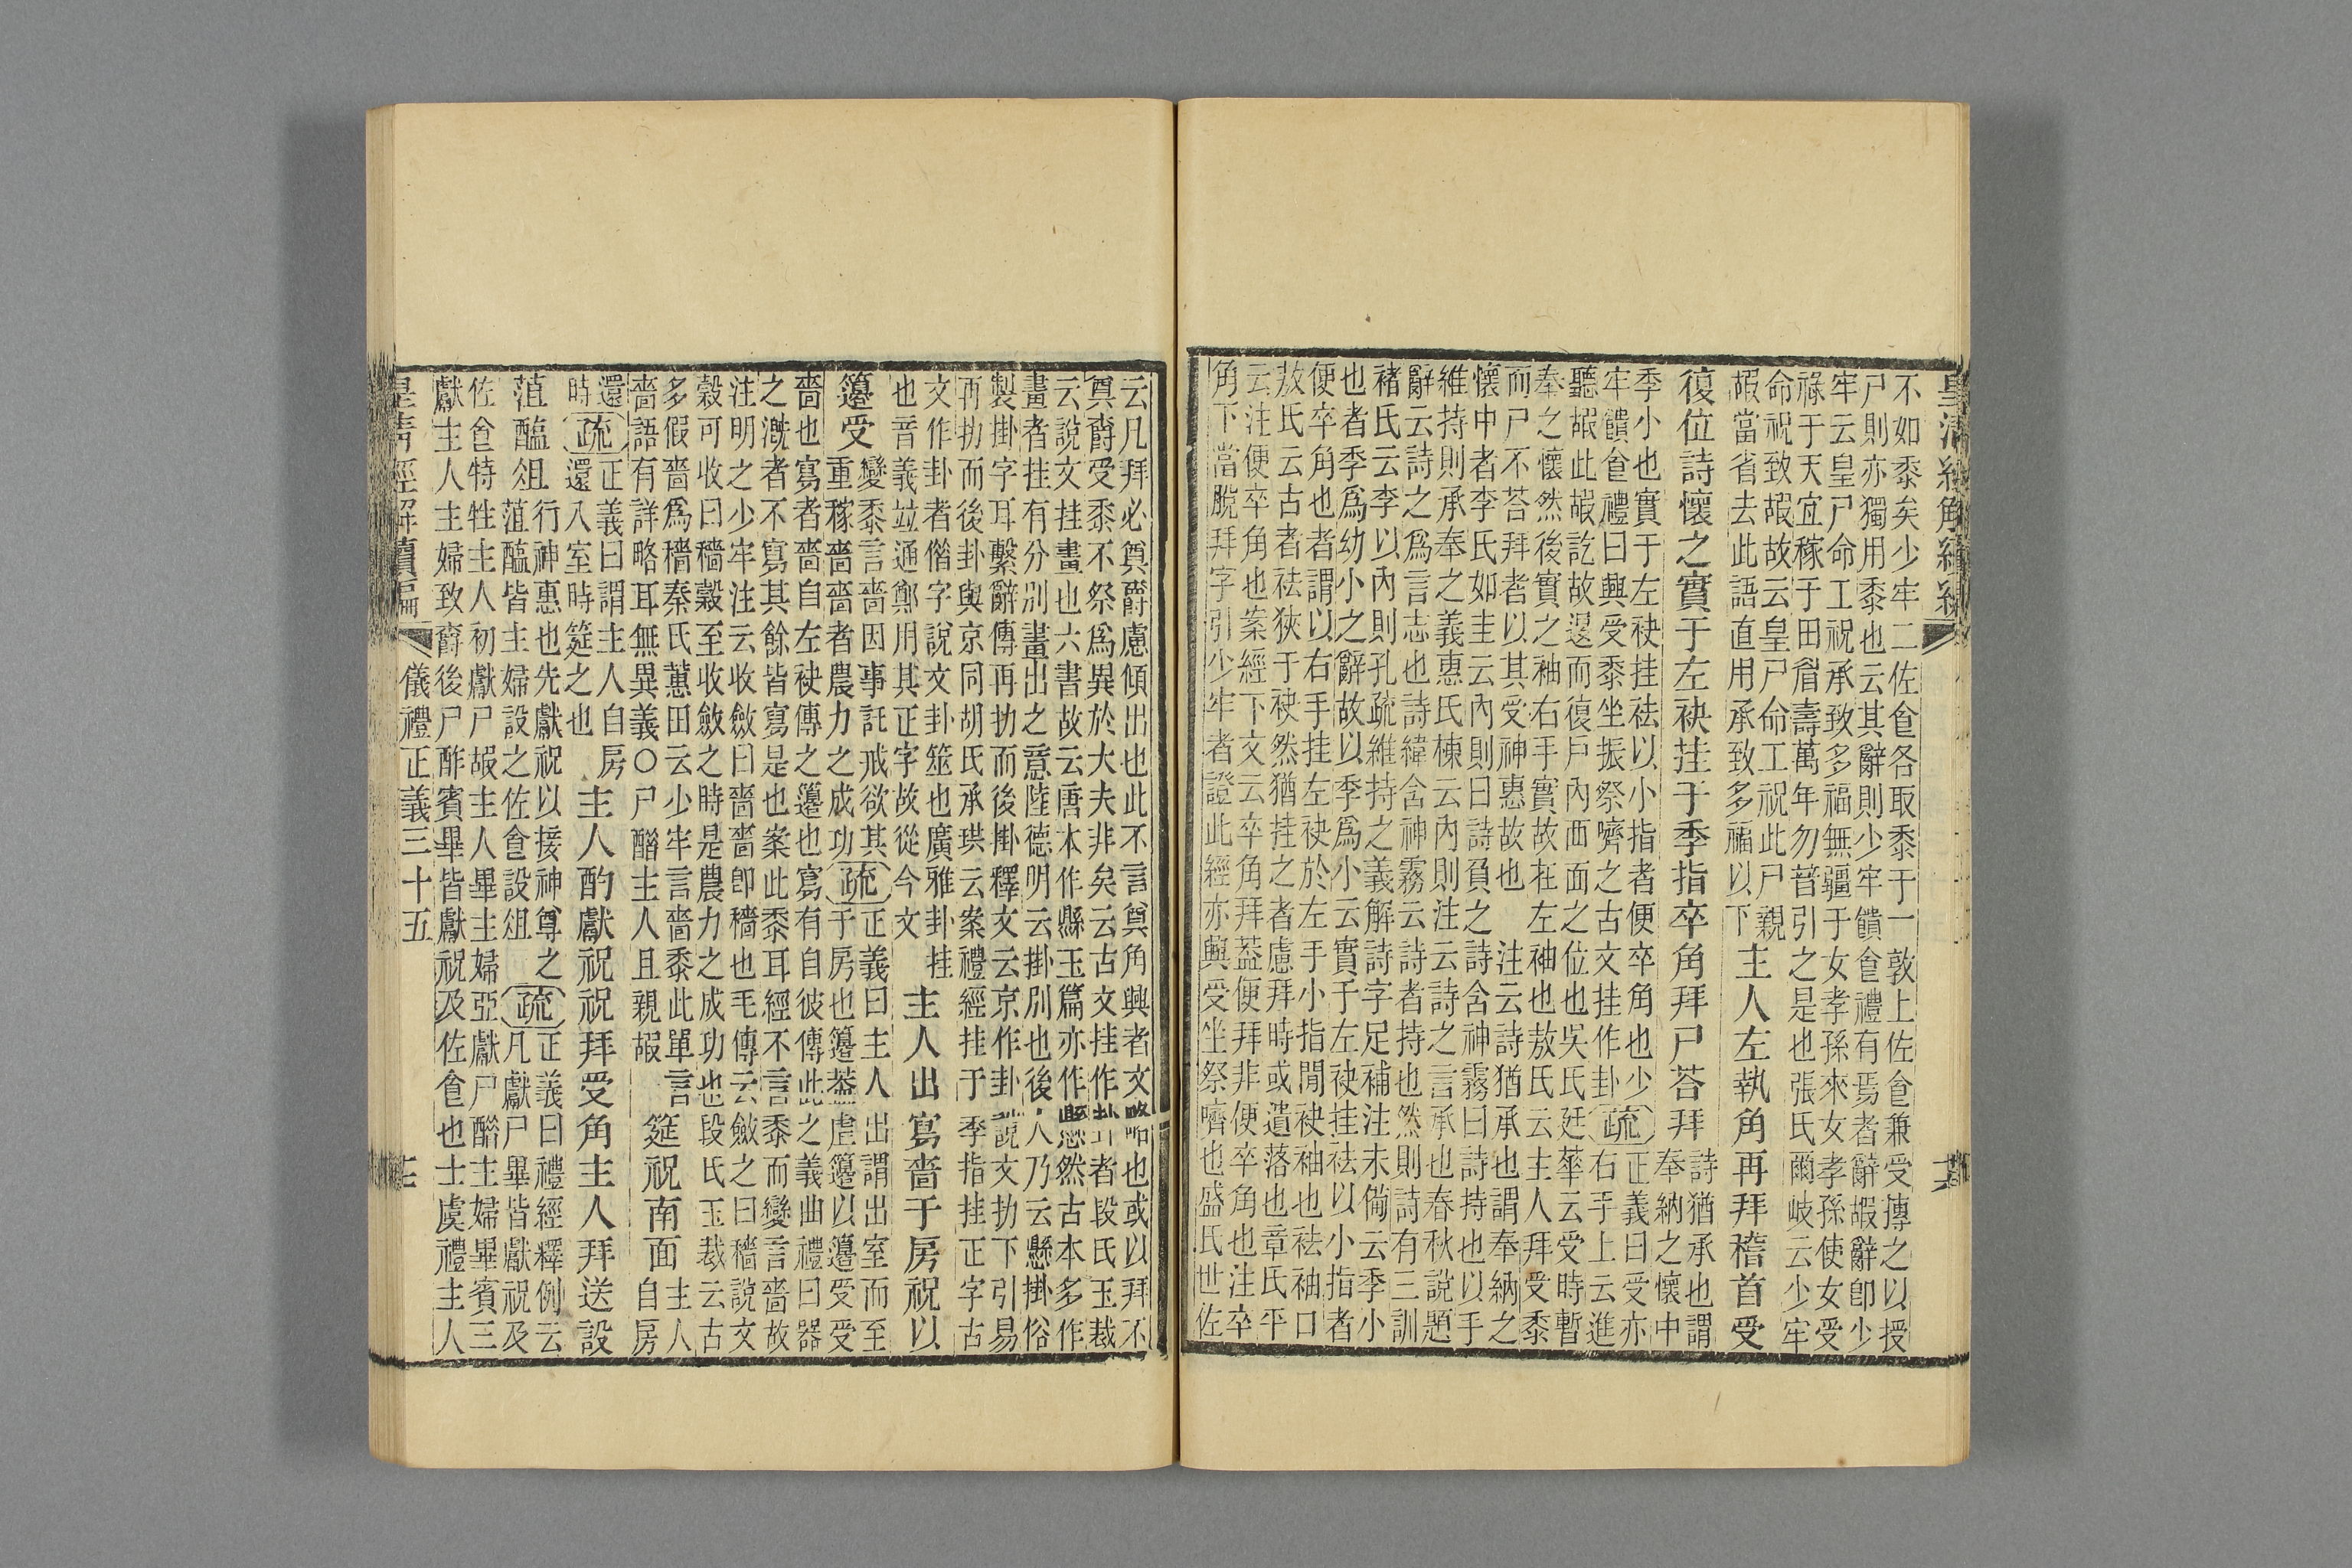 皇清經解續編　六
不如黍矣少牢二佐食各取黍于一敦上佐食兼受摶之以授
尸則亦獨用黍也云其辭則少牢饋食禮有焉者辭嘏辭卽少
牢云皇尸命工祝承致多福無疆于女孝孫來女孝孫使女受
祿于天宜稼于田眉壽萬年勿替引之是也張氏爾岐云少牢
命祝致嘏故云皇尸命工祝此尸親
嘏當省去此語直用承致多福以下
主人左執角再拜稽首受
復位詩懷之實于左袂挂于季指卒角拜尸荅拜
詩猶承也謂
奉納之懷中
季小也實于左袂挂袪以小指者便卒角也少
牢饋食禮曰興受黍坐振祭嚌之古文挂作卦
疏
正義曰受亦
右手上云進
聽嘏此嘏訖故還而復戶內西面之位也吳氏廷華云受時暫
奉之懷然後實之袖右手實故在左袖也敖氏云主人拜受黍
而尸不荅拜者以其受神惠故也　注云詩猶承也謂奉納之
懷中者李氏如圭云內則曰詩負之詩含神霧曰詩持也以手
維持則承奉之義惠氏棟云內則注云詩之言承也春秋說題
辭云詩之爲言志也詩緯含神霧云詩者持也然則詩有三訓
褚氏云李以內則孔疏維持之義解詩字足補注未備云季小
也者季爲幼小之辭故以季爲小云實于左袂挂袪以小指者
便卒角也者謂以右手挂左袂於左手小指閒袂袖也袪袖口
敖氏云古者袪狹于袂然猶挂之者慮拜時或遺落也章氏平
云注便卒角也案經下文云卒角拜蓋便拜非便卒角也注卒
角下當脫拜字引少牢者證此經亦興受坐祭嚌也盛氏世佐
云凡拜必奠爵慮傾出也此不言奠角興者文略也或以拜不
奠爵受黍不祭爲異於大夫非矣云古文挂作卦者段氏玉裁
云說文挂畫也六書故云唐本作縣玉篇亦作懸然古本多作
畫者挂有分別畫出之意陸德明云掛別也後人乃云懸掛俗
製掛字耳繫辭傳再扐而後掛釋文云京作卦說文扐下引易
再扐而後卦與京同胡氏承珙云案禮經挂于季指挂正字古
文作卦者偕字說文卦筮也廣雅卦挂
也音義竝通鄭用其正字故從今文
主人出寫嗇于房祝以
籩受
變黍言嗇因事託戒欲其
重稼嗇嗇者農力之成功
疏
正義曰主人出謂出室而至
于房也籩蓋虛籩以籩受受
嗇也寫者嗇自左袂傳之籩也寫有自彼傳此之義曲禮曰器
之溉者不寫其餘皆寫是也案此黍耳經不言黍而變言嗇故
注明之少牢注云收斂曰嗇嗇卽穡也毛傳云斂之曰穡說文
穀可收曰穡穀至收斂之時是農力之成功也段氏玉裁云古
多假嗇爲穡秦氏蕙田云少牢言嗇黍此單言
嗇語有詳略耳無異義○尸酳主人且親嘏
筵祝南面
主人自房
還時
疏
正義曰謂主人自房
還入室時筵之也
主人酌獻祝祝拜受角主人拜送設
菹醢俎
行神惠也先獻祝以接神尊之
菹醢皆主婦設之佐食設俎
疏
正義曰禮經釋例云
凡獻尸畢皆獻祝及
佐食特牲主人初獻尸嘏主人畢主婦亞獻尸酳主婦畢賓三
獻主人主婦致爵後尸酢賓畢皆獻祝及佐食也士虞禮主人
皇清經解續編　儀禮正義三十五